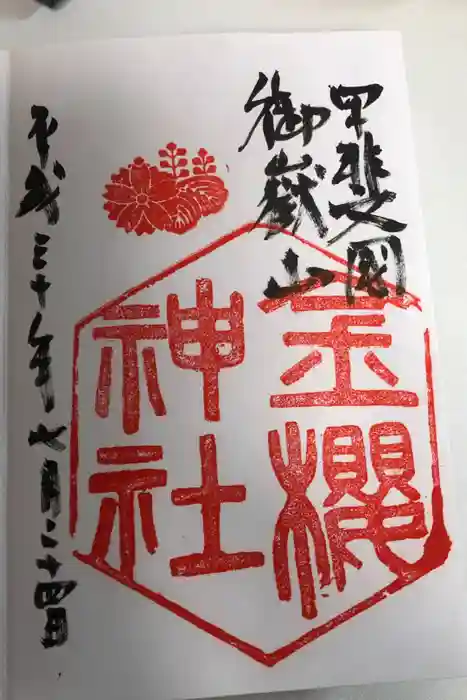 甲斐国
御嶽山
金櫻
神社
平成三十年七月二十四日